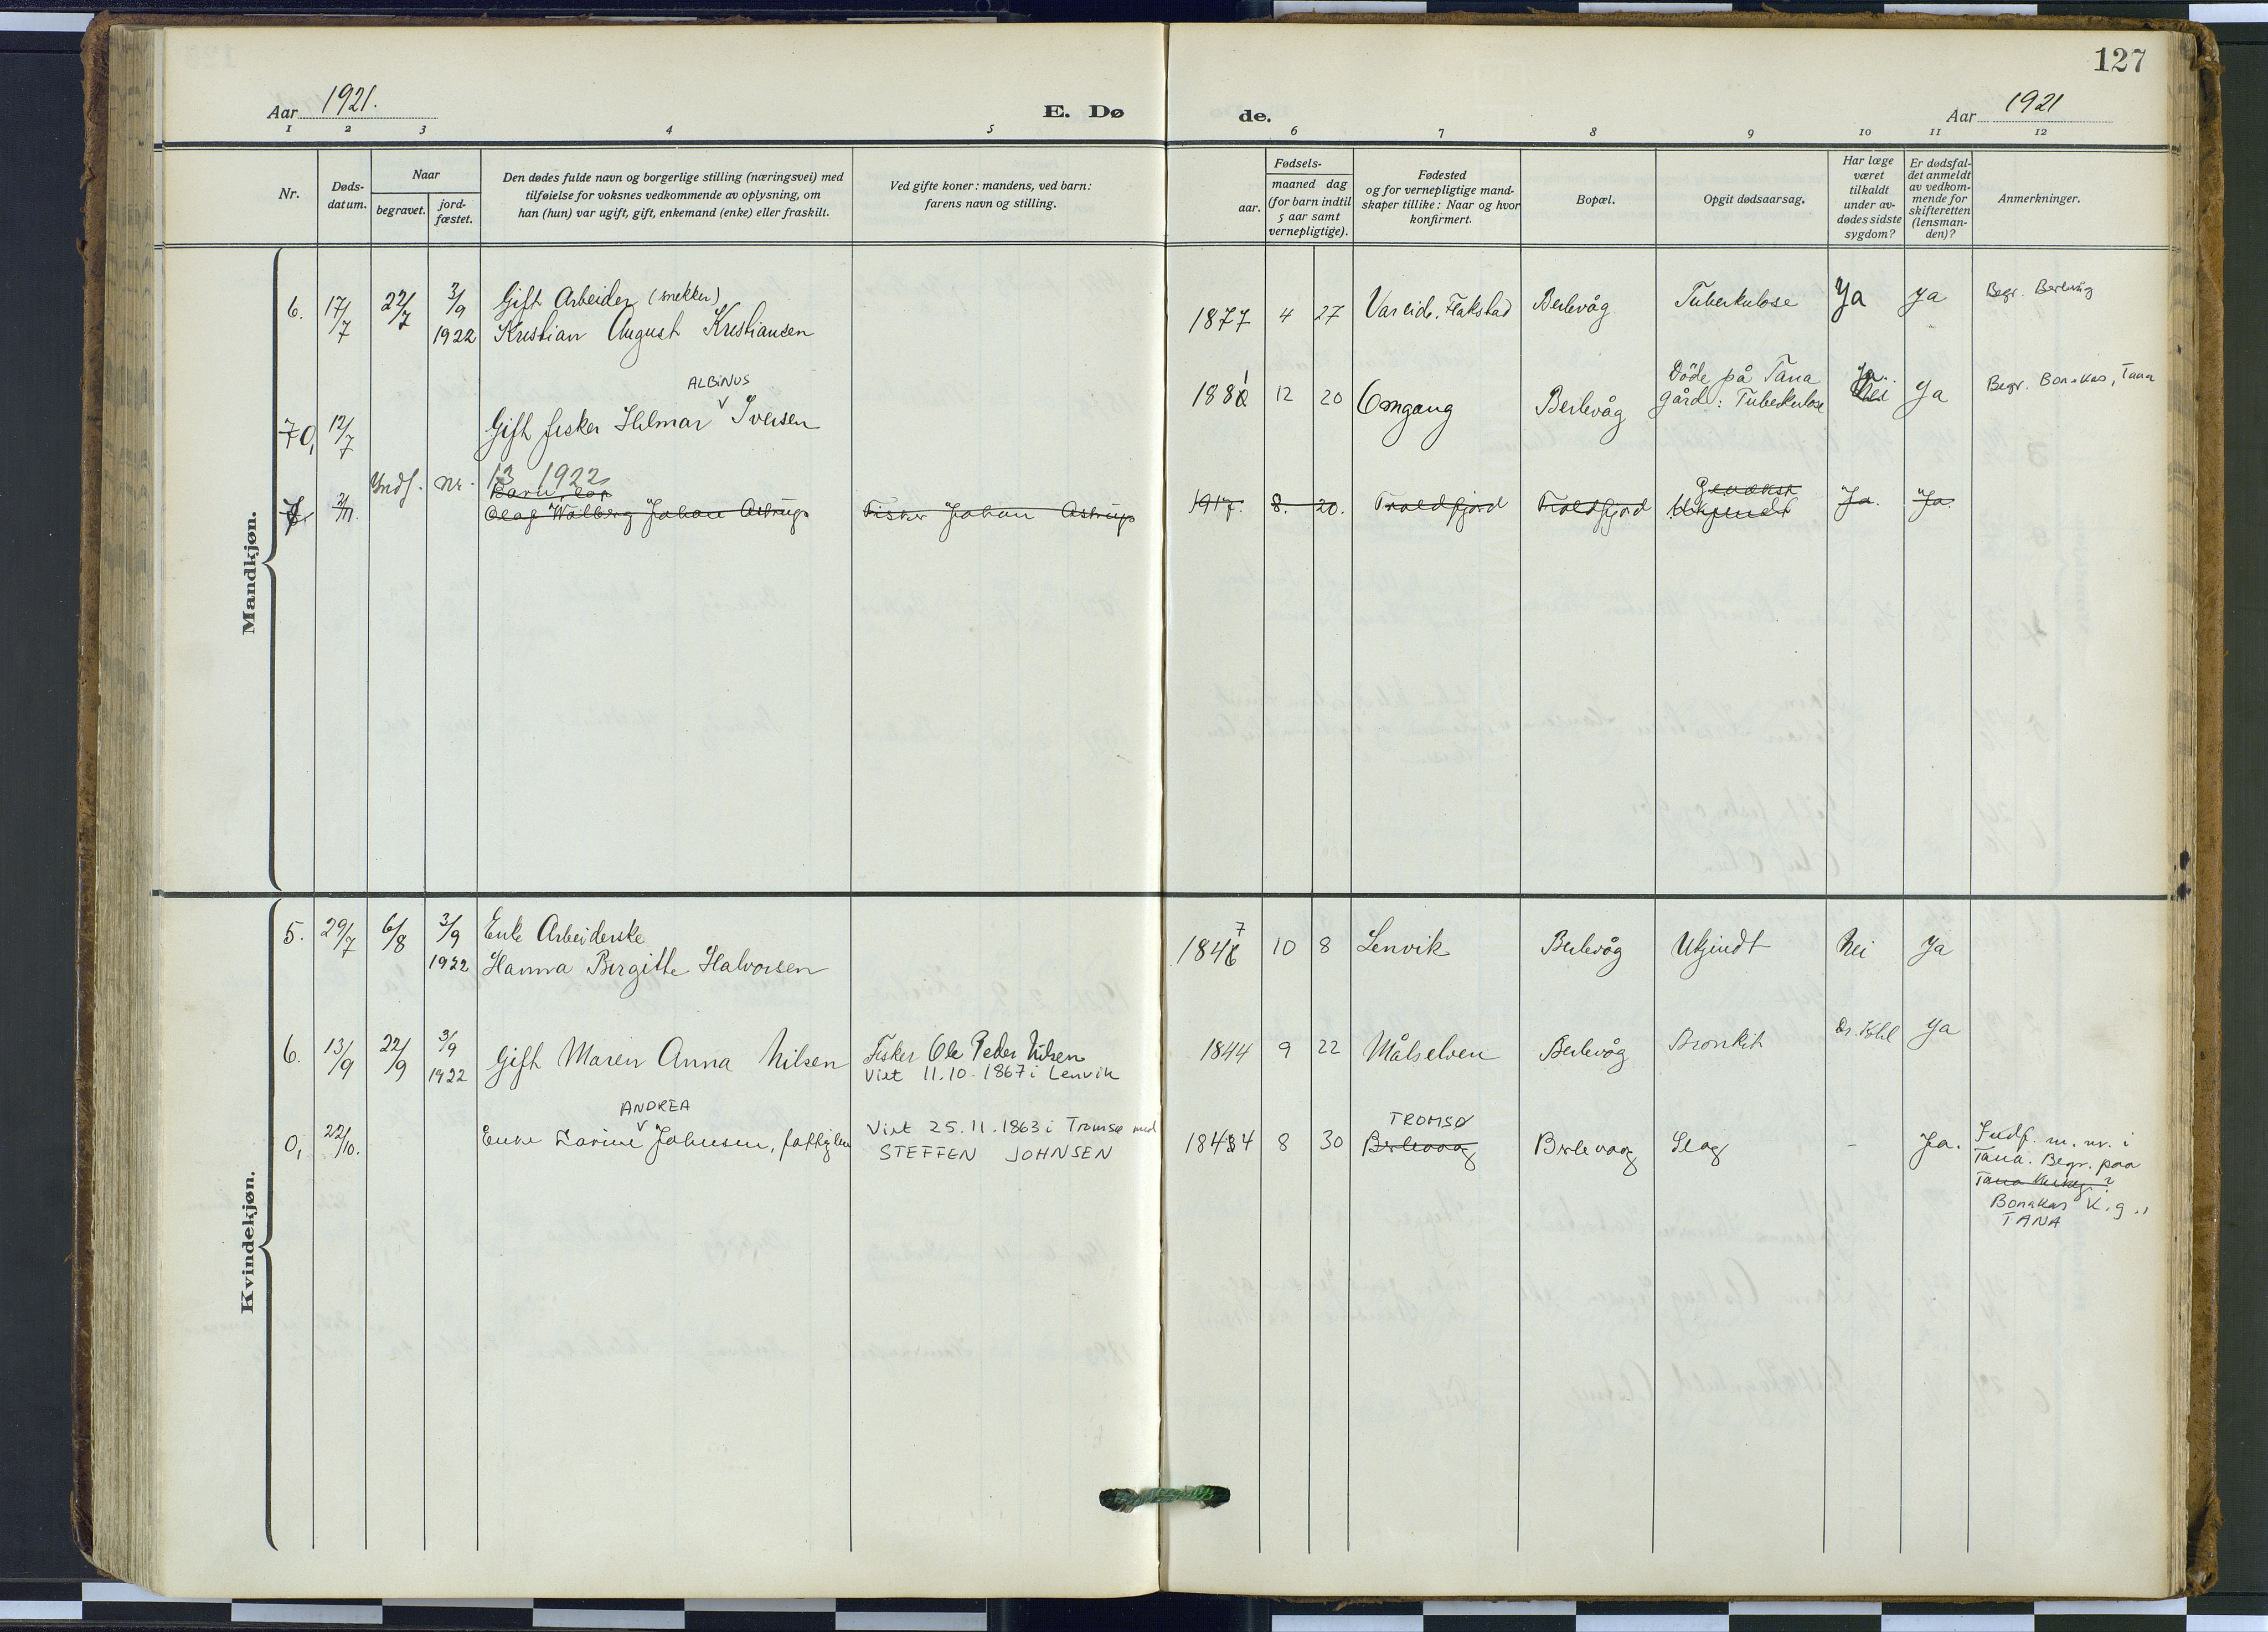 127
Aar 1921. E. Dø de. Aar 1921
1 2 3 4 5 6 7 8 9 10 11 12
Nr.
Døds-
datum.
Naar
begravet.
jord-
fæstet.
Den dødes fulde navn og borgerlige stilling (næringsvei) med
tilføielse for voksnes vedkommende av oplysning, om
han (hun) var ugift, gift, enkemand (enke) eller fraskilt.
Ved gifte koner: mandens, ved barn:
farens navn og stilling.
Fødsels-
aar.
maaned dag
(for barn indtil
5 aar samt
vernepligtige).
Fødested
og for vernepligtige mand-
skaper tillike: Naar og hvor
konfirmert.
Bopæl.
Opgit dødsaarsag.
Har læge
været
tilkaldt
under av-
dødes sidste
sygdom?
Er dødsfal-
det anmeldt
av vedkom-
mende for
skifteretten
(lensman-
den)?
Anmerkninger.
Mandkjøn.
6. 17/7 22/7 3/9 1922
Gift Arbeider (snekker)
Kristian August Kristiansen
1877 4 27 Vareid. Flakstad Berlevåg Tuberkulose Ja Ja Begr. Berlevåg
70, 12/7
ALBINUS
Gift fisker Hilmar Iversen
1881 12 20 Omgang Berlevåg
Döde på Tana
gård: Tuberkulose
Ja. Nei Ja Begr. Bonakas, Tana
Indf. nr. 13 1922
2/11.
Barn,
Olaf Walberg Johan Astrup
Fisker Johan Astrup
1917. 8. 20. Troldfjord Troldfjord
Ukjendt
Ja. Ja.
Kvindekjøn.
5. 29/7 6/8 3/9 1922
Enke Arbeiderske
Hanna Birgitte Halvorsen
1847 10 8 Lenvik Berlevåg Ukjendt Nei Ja
6. 13/9 22/9 3/9 1922
Gift Maren Anna Nilsen
Fisker Ole Peder Nilsen
Viet 11.10.1867 i Lenvik
1844 9 22 Målselven Berlevåg Bronkit Dr. Kohl Ja
0, 22/10.
ANDREA
Enke Zarine Johnsen, fattiglem
Viet 25.11.1863 i Tromsø med
STEFFEN JOHNSEN
18434 8 30
TROMSØ
Berlevaag Berlevaag Slag - Ja.
Indf. m. nr. i
Tana. Begr. paa
Tana kirkeg?
Bonakas K.g.,
TANA